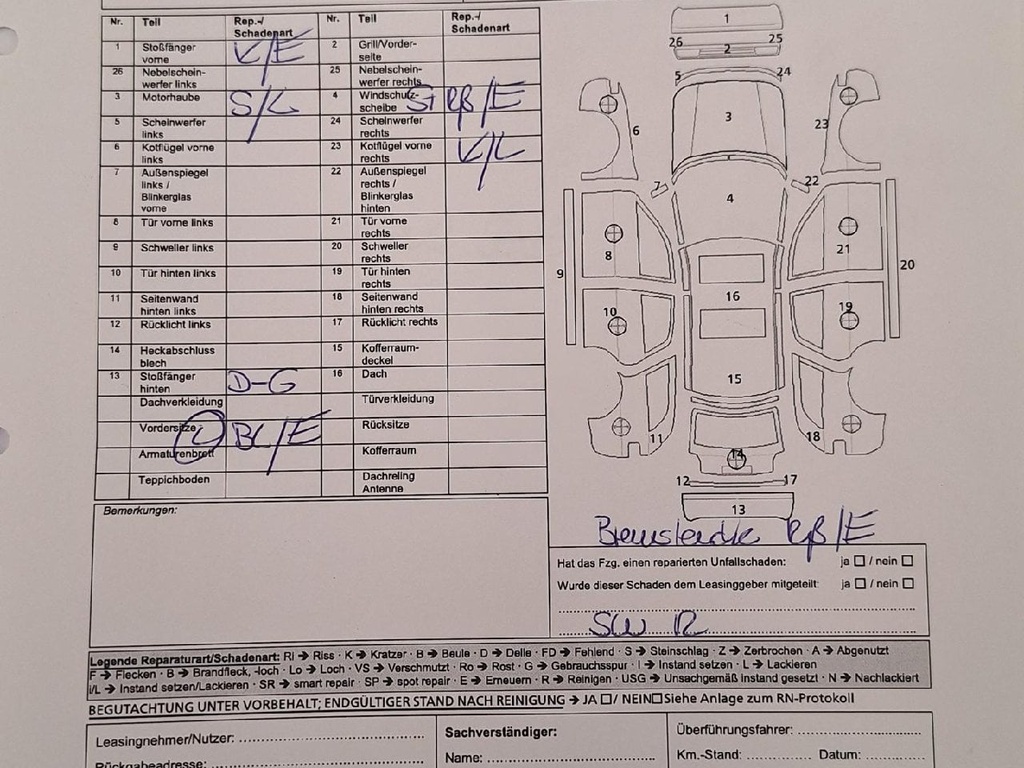 Nr. Teil Rep.-/ Schadenart Nr. Teil Rep.-/ Schadenart
1 Stoßfänger vorne K/E 2 Grill/Vorderseite
26 Nebelscheinwerfer links 25 Nebelscheinwerfer rechts
3 Motorhaube S/L 4 Windschutzscheibe /E
5 Scheinwerfer links 24 Scheinwerfer rechts
6 Kotflügel vorne links 23 Kotflügel vorne rechts K/L
7 Außenspiegel links / Blinkerglas vorne 22 Außenspiegel rechts / Blinkerglas hinten
8 Tür vorne links 21 Tür vorne rechts
9 Schweller links 20 Schweller rechts
10 Tür hinten links 19 Tür hinten rechts
11 Seitenwand hinten links 18 Seitenwand hinten rechts
12 Rücklicht links 17 Rücklicht rechts
14 Heckabschluss blech 15 Kofferraum-deckel
13 Stoßfänger hinten D-G 16 Dach
Dachverkleidung Türverkleidung
Vordersitze L BL/E Rücksitze
Armaturenbrett Kofferraum
Teppichboden Dachreling Antenne
1
26 2 25
5 24
6 3 23
7 22
4
8 21
9 20
16
10 19
15
11 18
14
12 17
13
/E
Bemerkungen:
Hat das Fzg. einen reparierten Unfallschaden: ja / nein
Wurde dieser Schaden dem Leasinggeber mitgeteilt: ja / nein
SW R
Legende Reparaturart/Schadenart: RI → Riss · K → Kratzer · B → Beule · D → Delle · FD → Fehlend · S → Steinschlag · Z → Zerbrochen · A → Abgenutzt
F → Flecken · B → Brandfleck, -loch · Lo → Loch · VS → Verschmutzt · Ro → Rost · G → Gebrauchsspur · I → Instand setzen · L → Lackieren
I/L → Instand setzen/Lackieren · SR → smart repair · SP → spot repair · E → Erneuern · R → Reinigen · USG → Unsachgemäß instand gesetzt · N → Nachlackiert
BEGUTACHTUNG UNTER VORBEHALT; ENDGÜLTIGER STAND NACH REINIGUNG → JA / NEIN Siehe Anlage zum RN-Protokoll
Leasingnehmer/Nutzer: Sachverständiger: Überführungsfahrer:
Rückgabeadresse: Name: Km.-Stand: Datum: